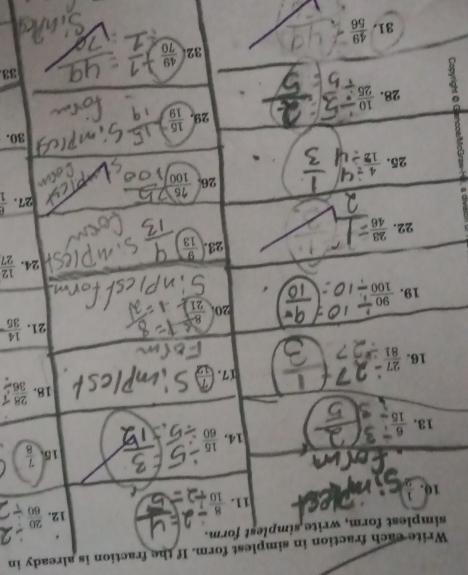 Write each fraction in simplest form. If the fraction is already in
simplest form, write simplest form.
10. 1/2 Simplest form
11. 8/10 ÷ 2/2 = 4/5
12. 20/60 ÷ 2
13. 6/15 ÷ 3/3 = 2/5
14. 15/60 ÷ 5/5 = 3/12
15. 7/8
16. 27/81 ÷ 27/27 = 1/3
17. 7/12 Simplest Form
18. 28/36 ÷
19. 90/100 ÷ 10/10 = 9/10
20. 8/21 ÷ 1/1 = 8/2 Simplest form
21. 14/35
22. 23/46 = 1/2
23. 9/13 9/13 Simplest form
24. 12/27
25. 4/12 ÷ 4/4 1/3
26. 75/100 75/100 Simplest form
27.
28. 10/25 ÷ 5/5 = 2/5
29. 15/19 15/19 Simplest form
30.
31. 49/56 ÷
32. 49/70 ÷ 1/1 = 49/70 Simplest
33.
Copyright © Glencoe/McGraw-Hill, a division of